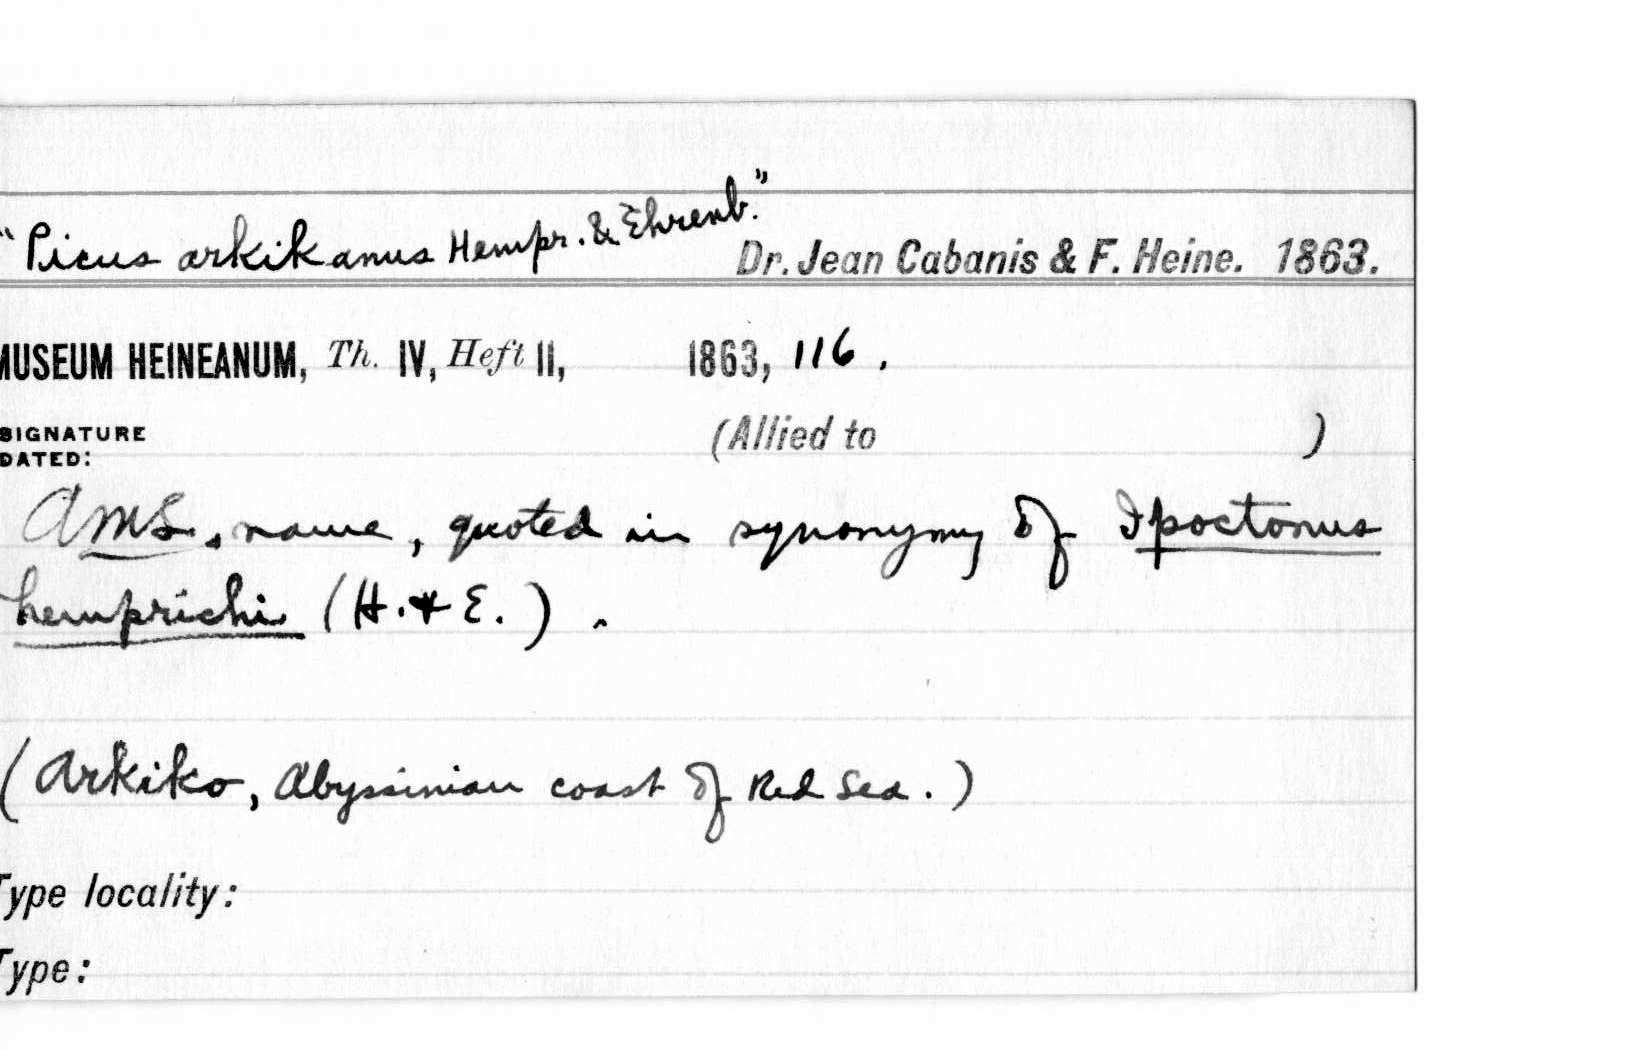 "Picus arkikanus Hempr. & Ehrenb."
Dr. Jean Cabanis & F. Heine. 1863.
MUSEUM HEINEANUM, Th. IV, Heft II, 1863, 116.
SIGNATURE
DATED:
(Allied to )
A MS. name, quoted in synonymy of Ipoctonus
hemprichi (H. & E.).
(Arkiko, Abyssinian coast of Red Sea.)
Type locality:
Type: